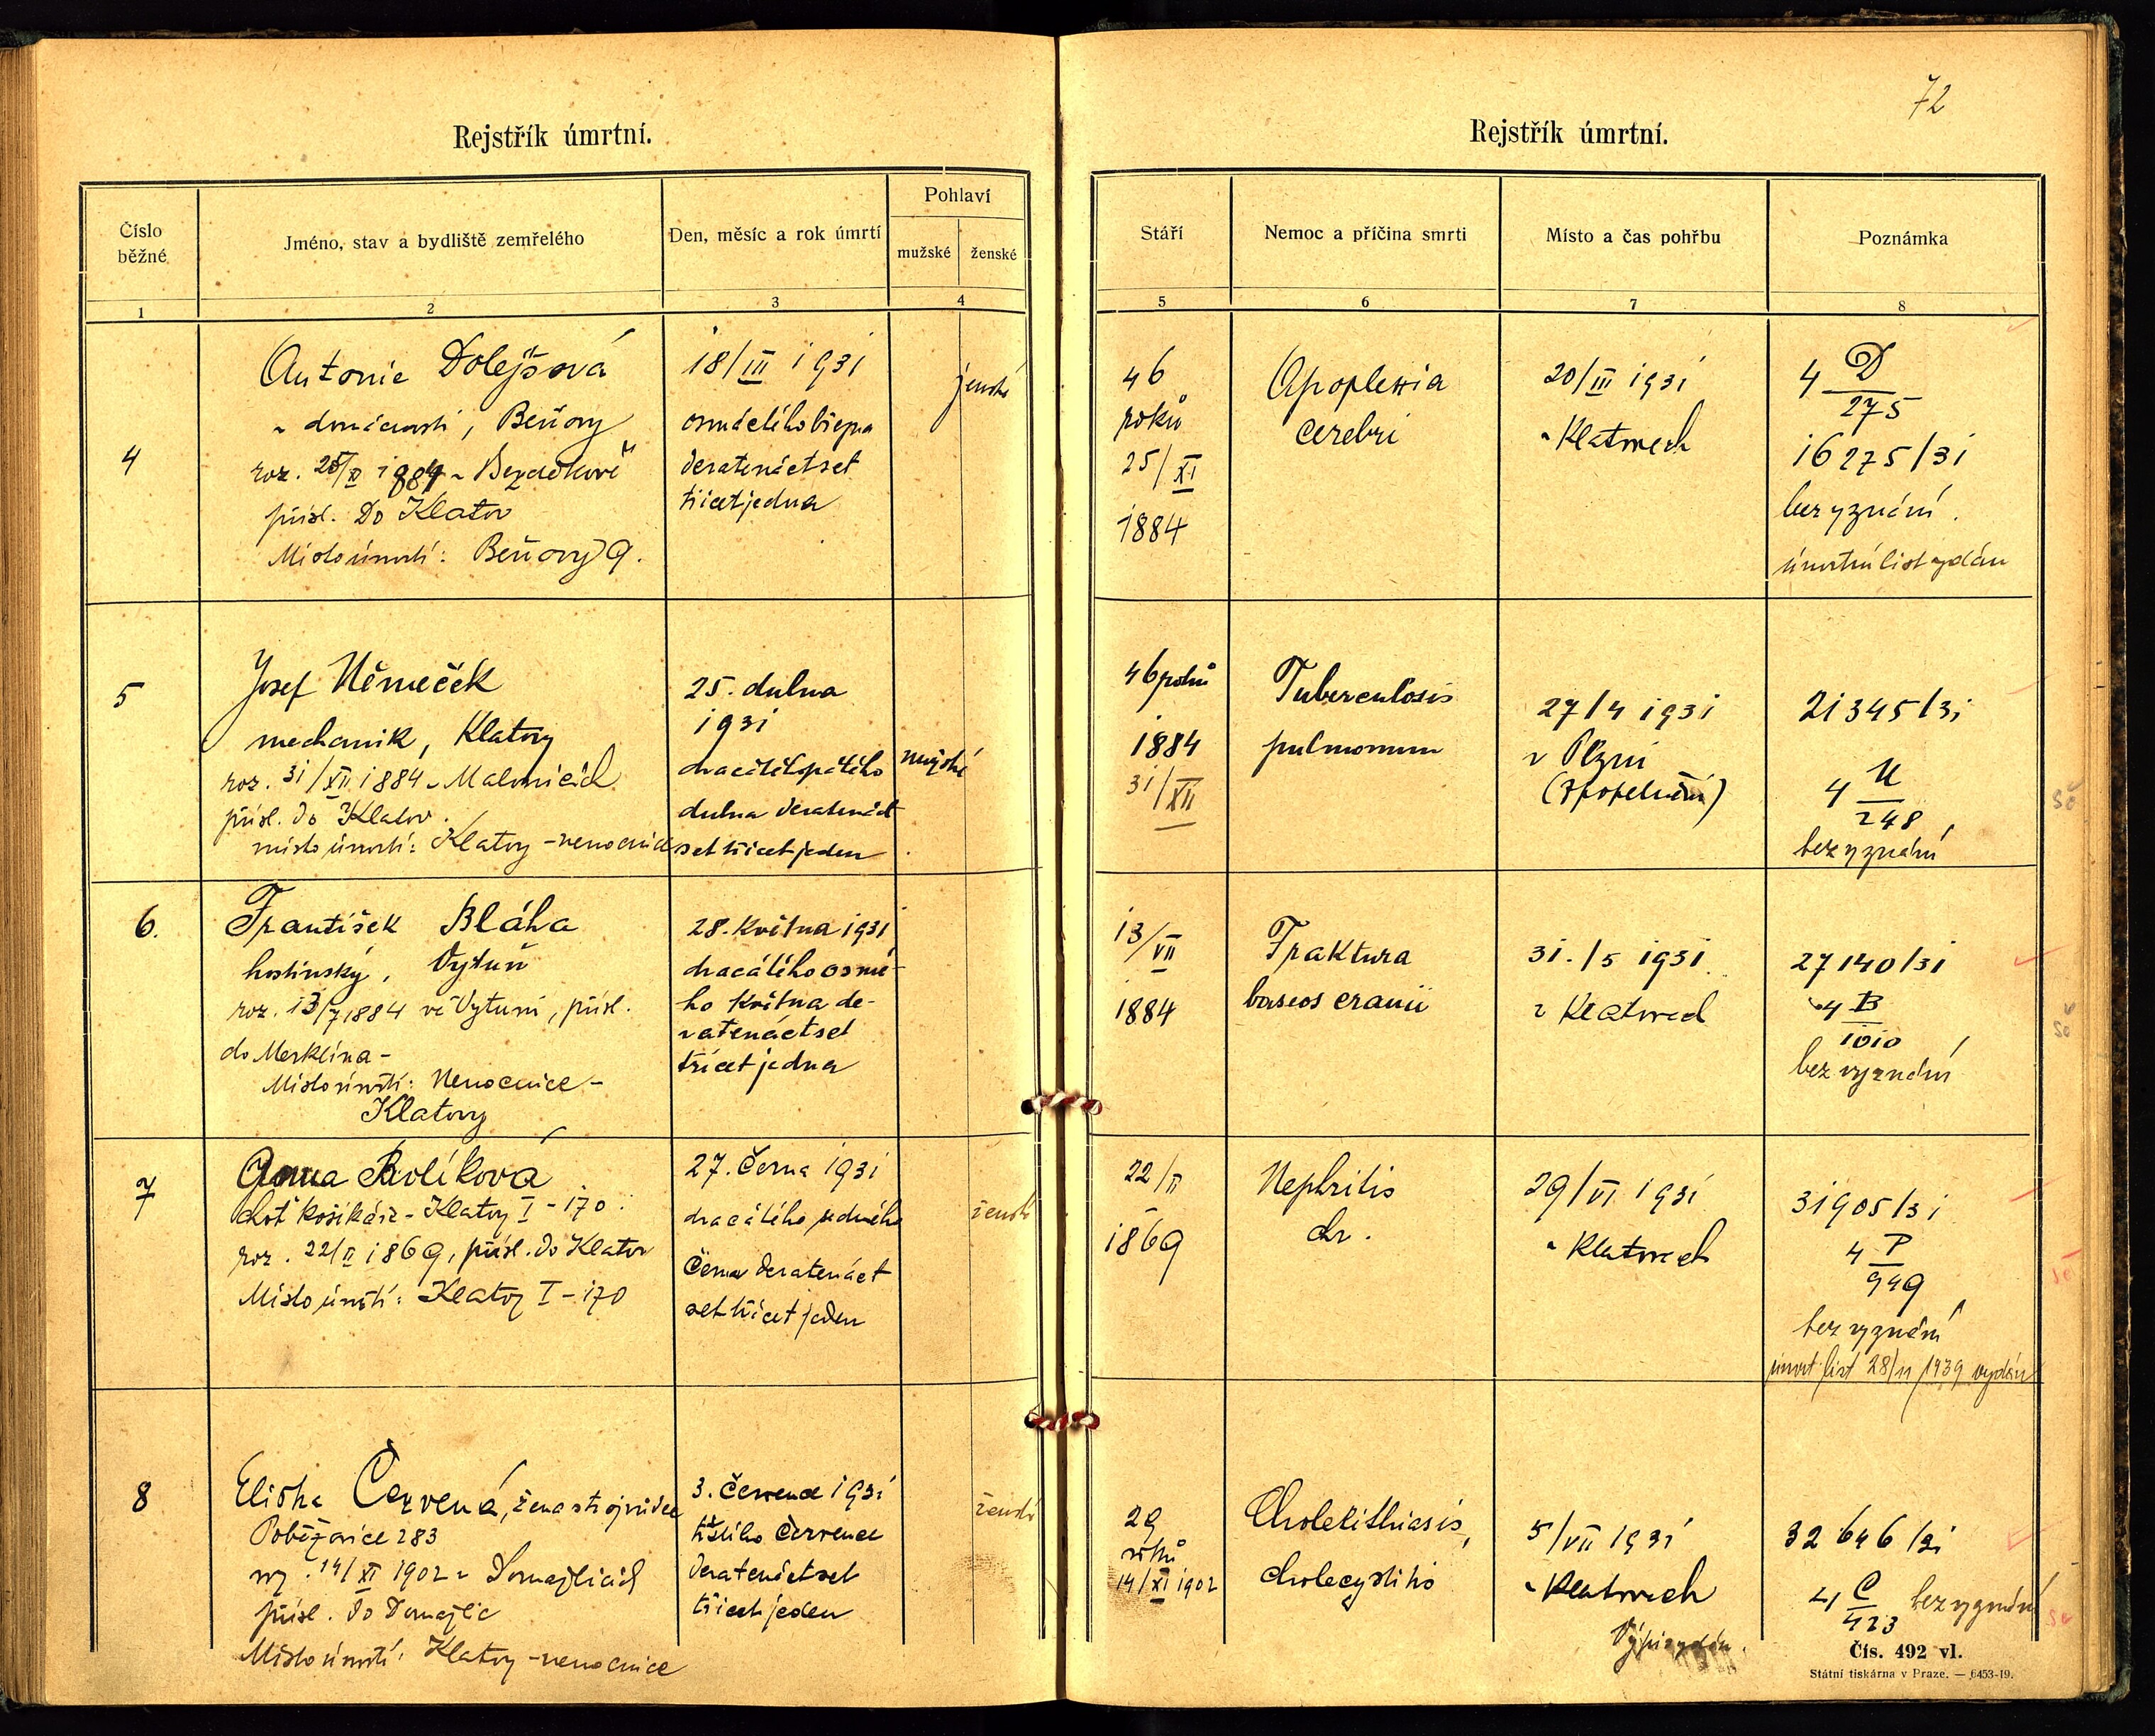 72
Rejstřík úmrtní.
Rejstřík úmrtní.
Číslo běžné
Jméno, stav a bydliště zemřelého
Den, měsíc a rok úmrtí
Pohlaví
mužské
ženské
Stáří
Nemoc a příčina smrti
Místo a čas pohřbu
Poznámka
1
2
3
4
5
6
7
8
4
Antonie Dolejšová
v domácnosti, Beňovy
roz. 25/XI 1884 v Bezděkově
přísl. do Klatov
Místo úmrtí: Beňovy 9.
18/III 1931
osmáctého března
devatenáctset
třicetjedna
ženské
46
roků
25/XI
1884
Apoplexia
cerebri
20/III 1931
v Klatovech
4 D
275
16275/31
bez vyznání.
úmrtní list vydán
5
Josef Němeček
mechanik, Klatovy
roz. 31/XII 1884 v Malonicích
přísl. do Klatov.
místo úmrtí: Klatovy - nemocnice
25. dubna
1931
dvacátéhopátého
dubna devatenáct
set třicet jeden
mužské
46 roků
1884
31/XII
Tuberculosis
pulmonum
27/4 1931
v Plzni
(zpopelnění)
21345/31
4 N
248
bez vyznání
6.
František Bláha
hostinský, Vytuň
roz. 13/7 1884 ve Vytuni, přísl.
do Merklína -
Místo úmrtí: Nemocnice -
Klatovy
28. května 1931
dvacátého osmé-
ho května de-
vatenáctset
třicet jedna
13/VII
1884
Fraktura
baseos cranii
31./5 1931
v Klatovech
27140/31
4 B
1010
bez vyznání
7
Anna
choť košíkáře - Klatovy I - 170.
roz. 22/II 1869, přísl. do Klatov
Místo úmrtí: Klatovy I - 170
27. června 1931
dvacátého sedmého
června devatenáct
set třicet jeden
ženské
22/II
1869
Nephritis
chr.
29/VI 1931
v Klatovech
31905/31
4 P
949
bez vyznání
úmrt list 28/11 1939 vydán
8
Eliška Červená, žena strojvůdce
Poběžovice 283
roz. 14/XI 1902 v Domažlicích
přísl. do Domažlic
Místo úmrtí: Klatovy - nemocnice
3. července 1931
třetího července
devatenáctset
třicet jeden
ženské
29
roků
14/XI 1902
Cholelithiasis,
cholecystitis
5/VII 1931
v Klatovech
Výpis vydán.
32646/31
4 C
423
bez vyznání
Čís. 492 vl.
Státní tiskárna v Praze. — 6453-19.